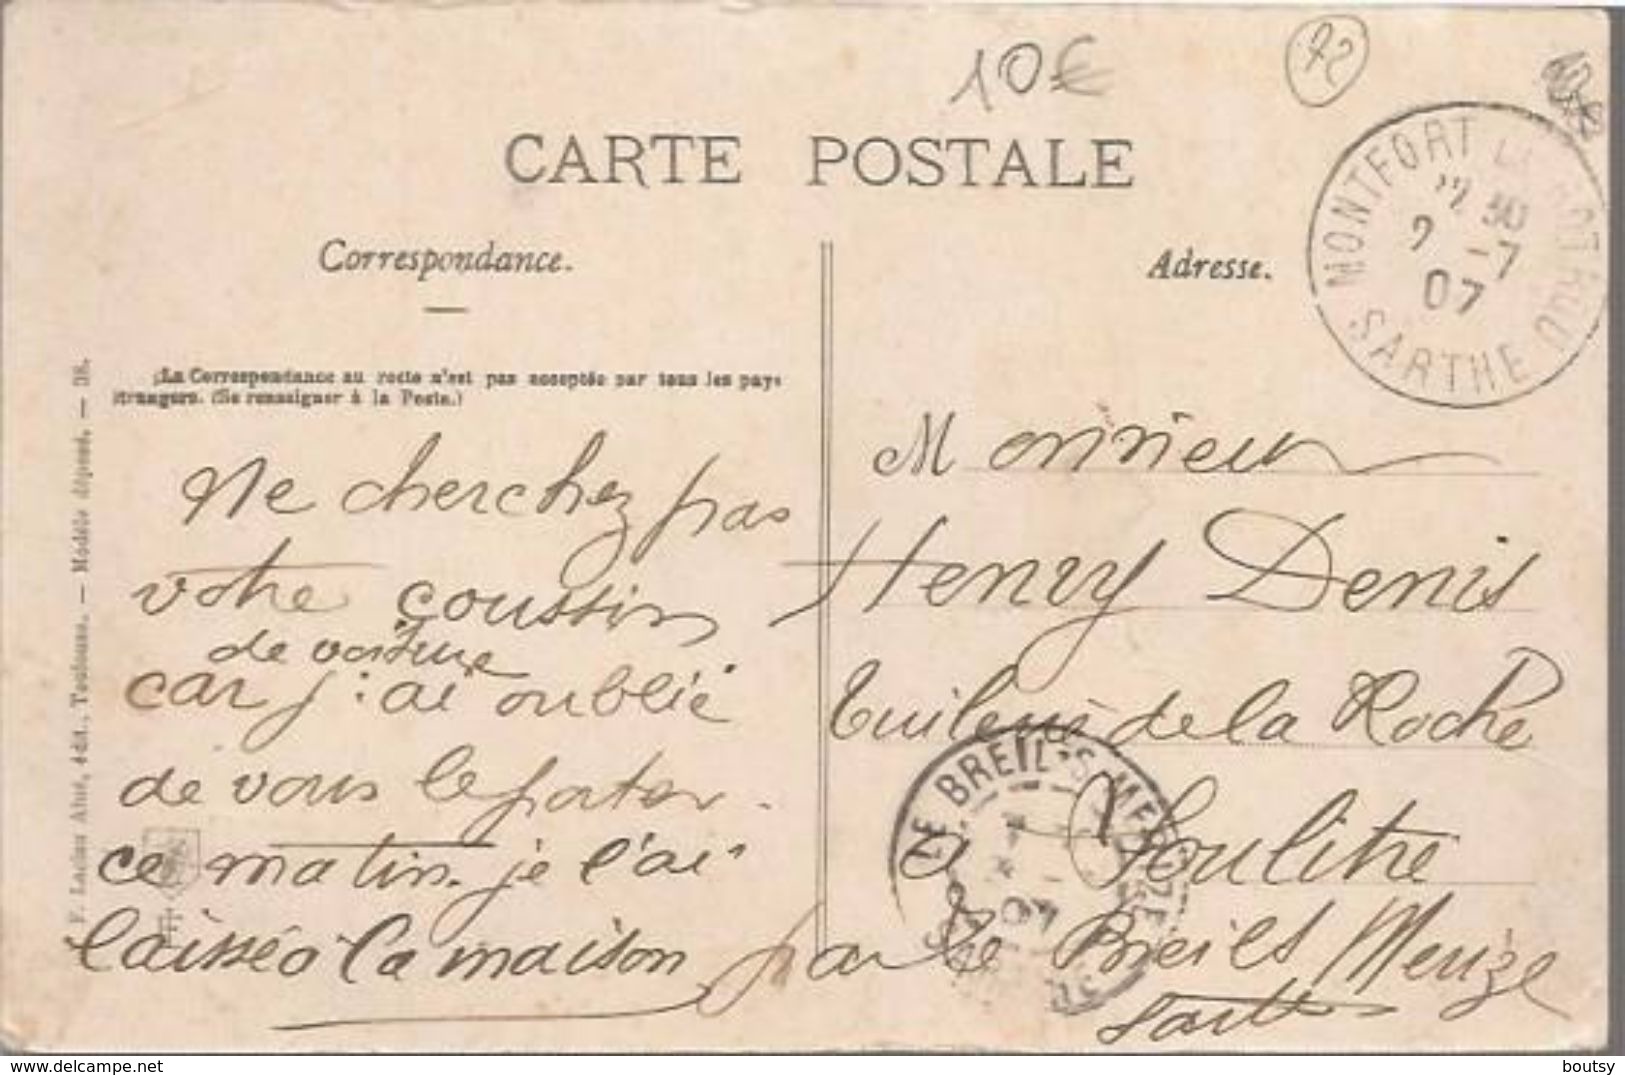 10€
72
CARTE POSTALE
MONTFORT LE ROTROU
30
2 -7
07
SARTHE
Correspondance.
Adresse.
(La Correspondance au recto n'est pas acceptée par tous les pays
étrangers. (Se renseigner à la Poste.)
F. Labouche, édit., Toulouse. — Modèle déposé. — 38.
Ne cherchez pas
votre coussin
de voiture
car j'ai oublié
de vous le porter
ce matin. je l'ai
laissé à la maison
Monsieur
Henry Denis
Tuilerie de la Roche
à Soulitré
par le Breil s/ Merize
Sarthe
LE BREIL S MERIZE
boutsy